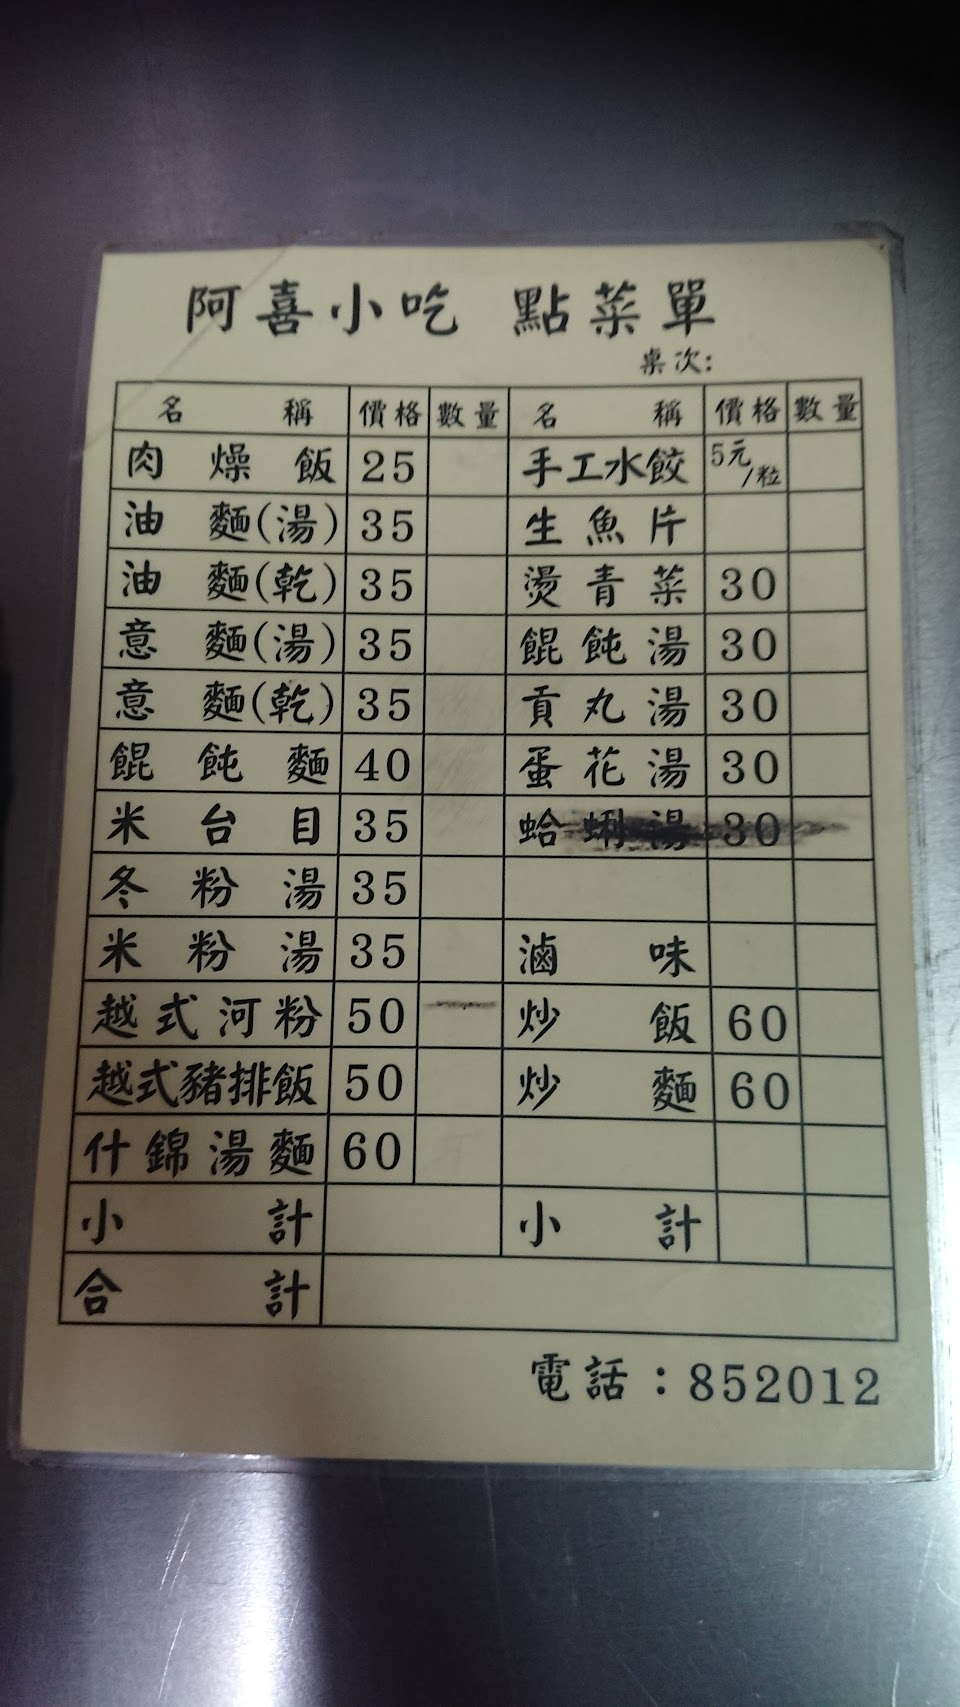 阿喜小吃 點菜單
桌次:
名稱 價格 數量 名稱 價格 數量
肉燥飯 25 手工水餃 5元/粒
油麵(湯) 35 生魚片
油麵(乾) 35 燙青菜 30
意麵(湯) 35 餛飩湯 30
意麵(乾) 35 貢丸湯 30
餛飩麵 40 蛋花湯 30
米台目 35 蛤蜊湯 30
冬粉湯 35
米粉湯 35 滷味
越式河粉 50 炒飯 60
越式豬排飯 50 炒麵 60
什錦湯麵 60
小計 小計
合計
電話：852012